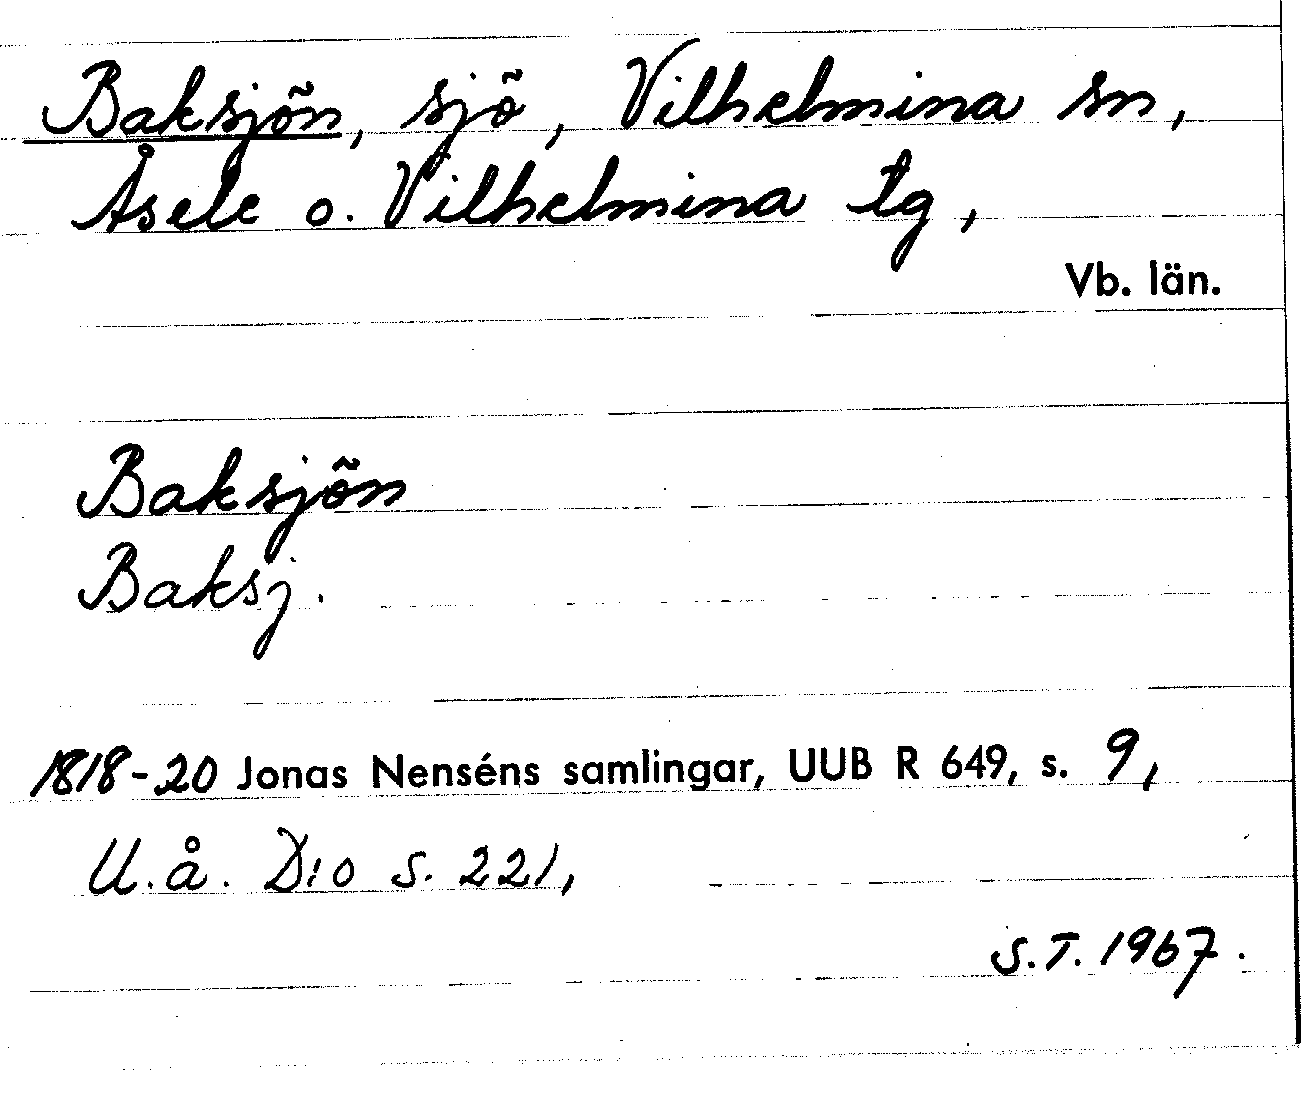 Baksjön, sjö, Vilhelmina sn,
Åsele o. Vilhelmina tg,
Vb. län.
Baksjön
Baksj.
1818-20 Jonas Nenséns samlingar, UUB R 649, s. 9,
U.å. D:o s. 221,
S.T. 1967.